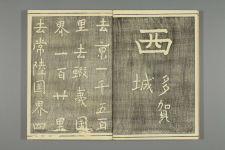 西
多賀
城
去京一千五百
里去蝦夷国
界一百廿里
去常陸国界四